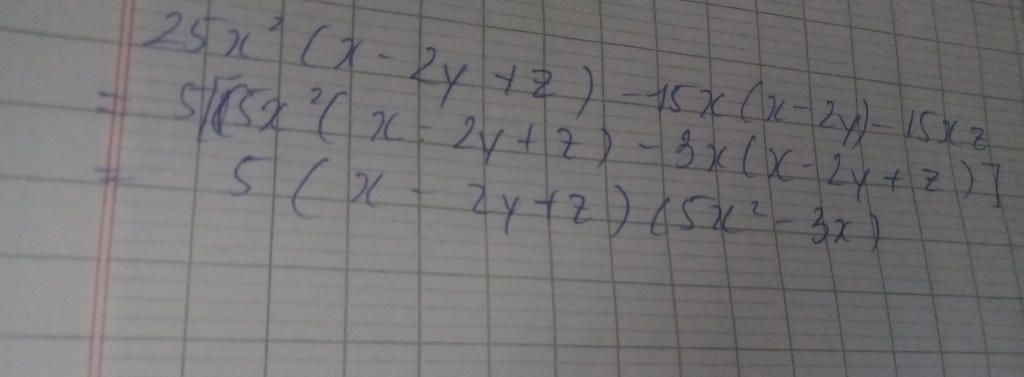 25x² (x - 2y + z) - 15x (x - 2y) - 15xz
= 5[5x² (x - 2y + z) - 3x (x - 2y + z)]
= 5 (x - 2y + z) (5x² - 3x)